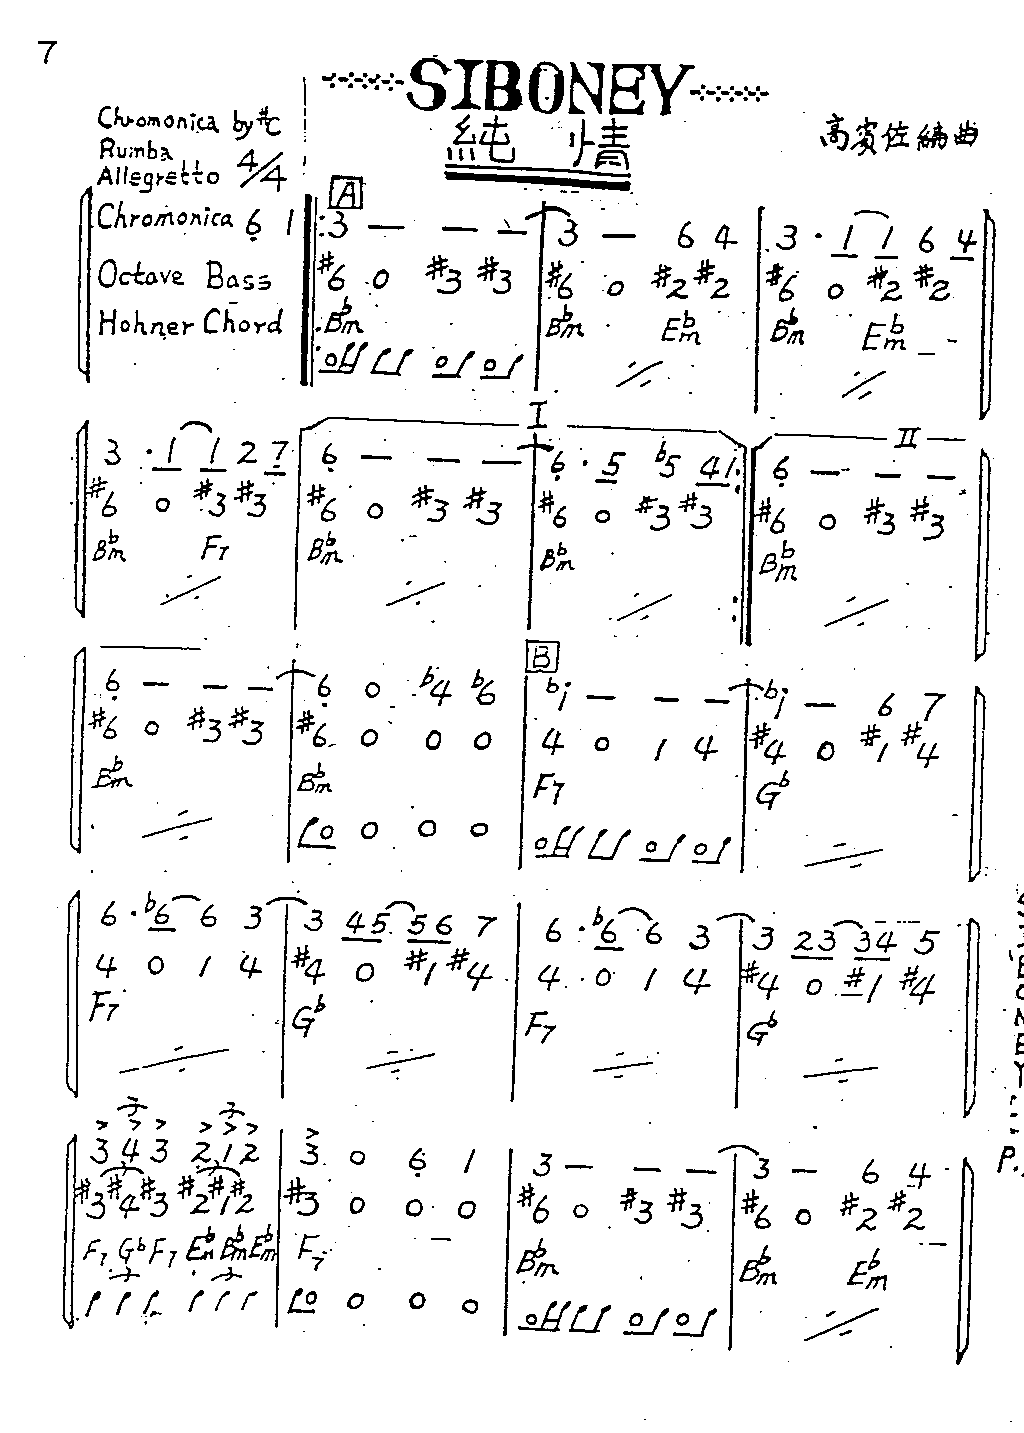 7
SIBONEY
純 情
Chromonica by #C
Rumba
Allegretto 4/4
高賓佐編曲
A
Chromonica 6̣ 1 3 — — — 3 — 6 4 3 · 1 1 6 4
Octave Bass #6 0 #3 #3 #6 0 #2 #2 #6 0 #2 #2
Hohner Chord B♭m B♭m E♭m B♭m E♭m
I II
3 · 1 1 2 7̣ 6̣ — — — 6̣ · 5 ♭5 4 1 6̣ — — —
#6 0 #3 #3 #6 0 #3 #3 #6 0 #3 #3 #6 0 #3 #3
B♭m F7 B♭m B♭m B♭m
B
6̣ — — — 6̣ 0 ♭4 ♭6 ♭i — — — ♭i — 6 7
#6 0 #3 #3 #6 0 0 0 4 0 1 4 #4 0 #1 #4
B♭m B♭m F7 G♭
0 0 0
6 · ♭6 6 3 3 4 5 5 6 7 6 · ♭6 6 3 3 2 3 3 4 5
4 0 1 4 #4 0 #1 #4 4 0 1 4 #4 0 #1 #4
F7 G♭ F7 G♭
SIBONEY
P.
3 3
3 4 3 2 1 2 3 0 6̣ 1 3 — — — 3 — 6 4
#3 #4 #3 #2 #1 #2 #3 0 0 0 #6 0 #3 #3 #6 0 #2 #2
F7 G♭ F7 E♭m B♭m E♭m F7 B♭m B♭m E♭m
3 3
0 0 0